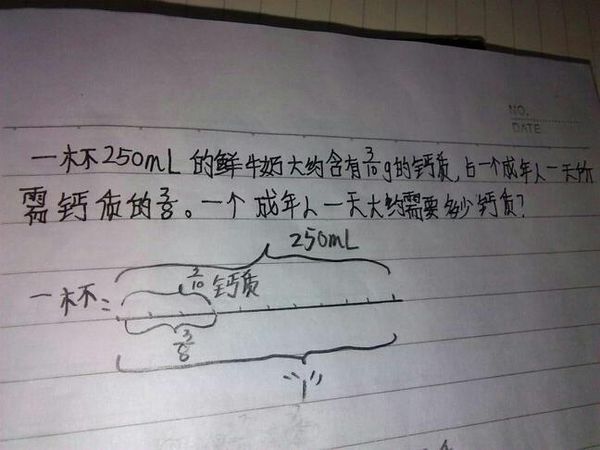 NO.
DATE
一杯250mL的鲜牛奶大约含有3/10g的钙质,占一个成年人一天所
需钙质的3/8。一个成年人一天大约需要多少钙质?
250mL
3/10钙质
一杯:
3/8
"1"